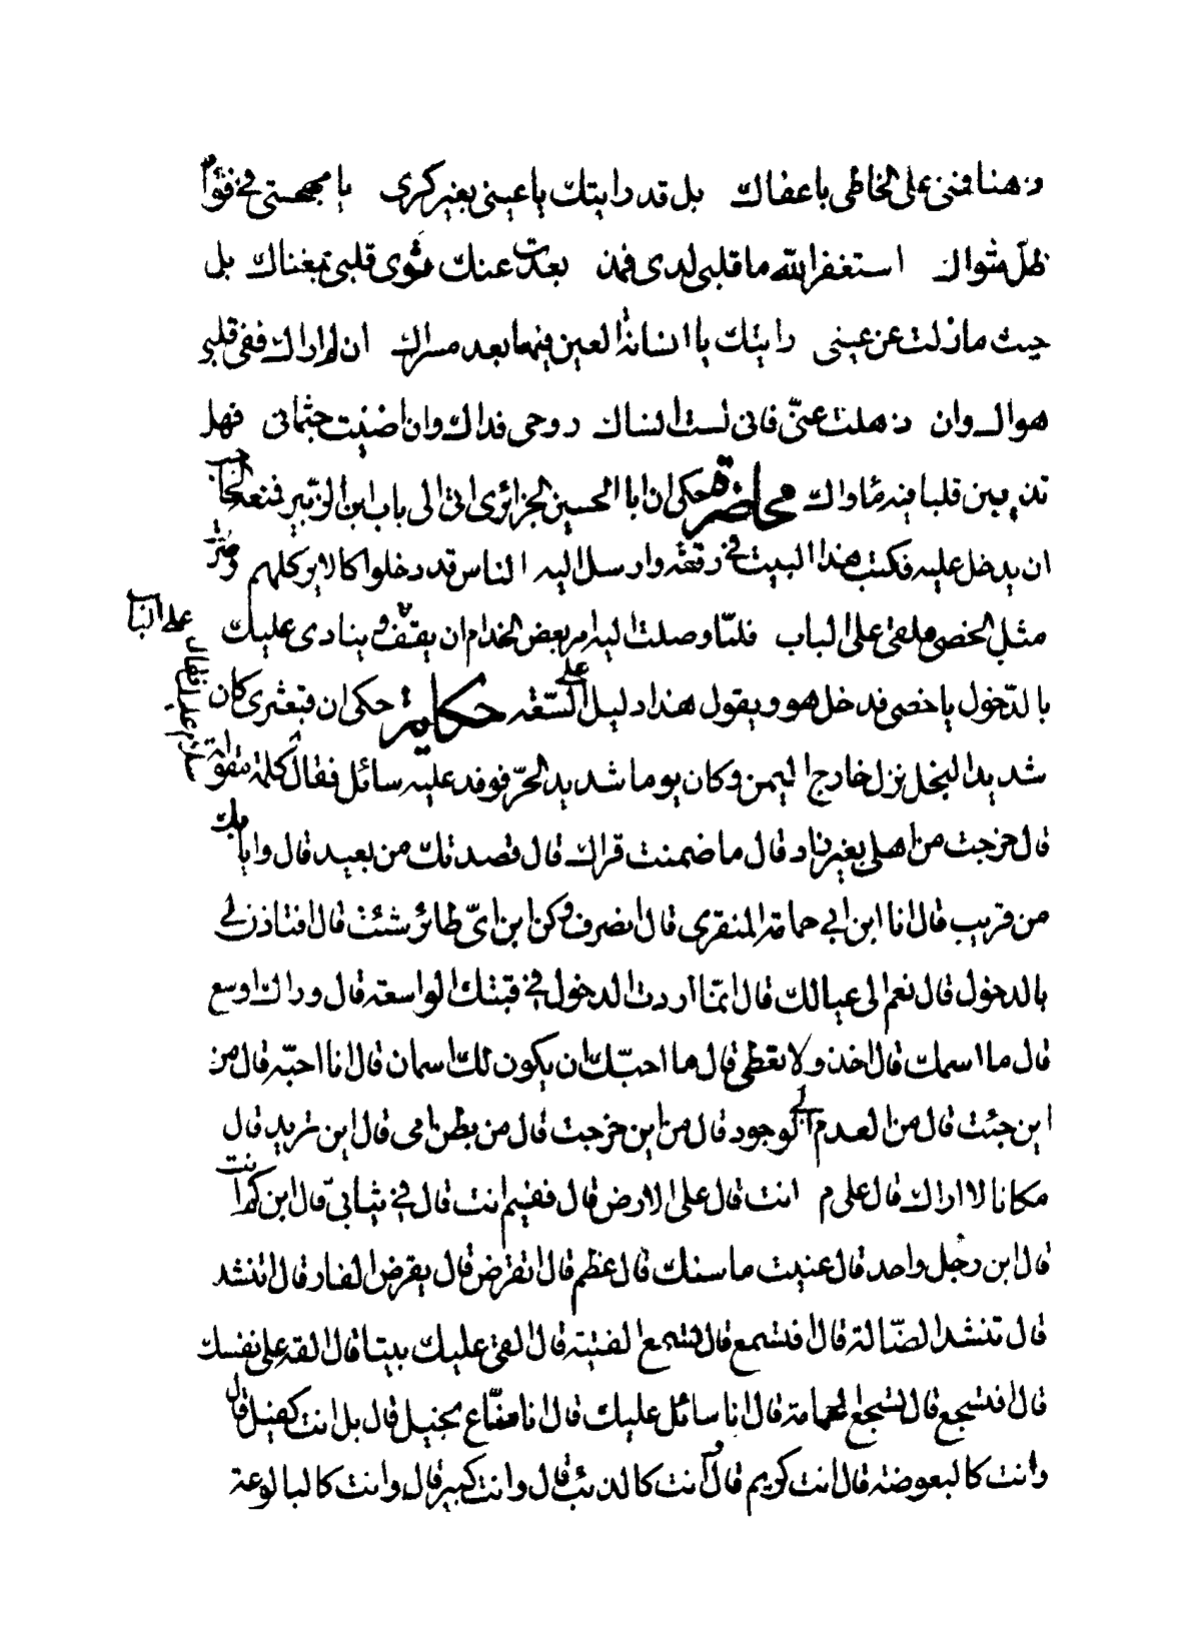 ذهنا فمنى على الخاطى باعفاك بل قد رايتك يا عينى بغير كرى يا مهجتى فى فؤاد
ظل مثواك استغفر الله ما قلبى لدى فمذ بعدت عنك ثوى قلبى بمغناك بل
حيث مازلت عن عينى رايتك يا انسانة العين فيها بعد مسراك ان لم اراك ففى قلبى
هواك وان ذهلت عنى فانى لست انساك روحى فداك وان اضنيت جثمانى فهل
تذيبين قلبا فيه مأواك محاضرة حكى ان ابا الحسين الجزائرى اتى الى باب ابن الزبير فمنعه الحاجب
ان يدخل عليه فكتب هذا البيت فى رقعة وارسل اليه الناس قد دخلوا كالاير كلهم وصرت
مثل الخصى ملقى على الباب فلما وصلت اليه امر بعض الخدام ان يقف وينادى عليك
بالدخول يا خصى فدخل هو ويقول هذا دليل على السعة حكاية حكى ان قبعثرى كان
شديد البخل نزل خارج اليمن وكان يوما شديد الحر فوفد عليه سائل فقال كلمة مقولة
سلام عليك فقال على النبا
قال خرجت من اهلى بغير زاد قال ما ضمنت قراك قال قصدتك من بعيد قال وايابك
من قريب قال انا ابن ابى حمامة المنقرى قال انصرف وكن ابن اى طائر شئت قال افتاذن لى
بالدخول قال نعم الى عيالك قال انما اردت الدخول فى قبتك الواسعة قال وراك اوسع
قال ما اسمك قال خذ ولا تعطى قال ما احبك ان يكون لك اسمان قال انا احبه قال من
اين جئت قال من العدم الى الوجود قال من اين خرجت قال من بطن امى قال اين تريد قال
مكانا لا اراك قال على م انت قال على الارض قال ففيم انت قال فى ثيابى قال ابن كم انت
قال ابن رجل واحد قال عنيت ما سنك قال عظم قال اتقرض قال يقرض الفار قال اتنشد
قال تنشد الضالة قال فتسمع قال تسمع الفتية قال القى عليك بيتا قال القه على نفسك
قال فتسجع قال تسجع الحمامة قال انا سائل عليك قال انا مناع بخيل قال بل انت كفيل قال
وانت كالبعوضة قال انت كريم قال وانت كالدئب قال وانت كبير قال وانت كالبالوعة